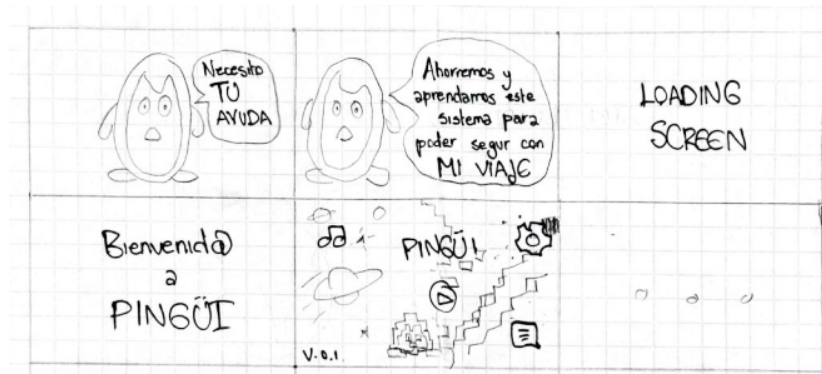 Necesito
TU
AYUDA
Ahorremos y
aprendamos este
sistema para
poder seguir con
MI VIAJE
LOADING
SCREEN
Bienvenid@
a
PINGÜI
PINGÜI
V.0.1.